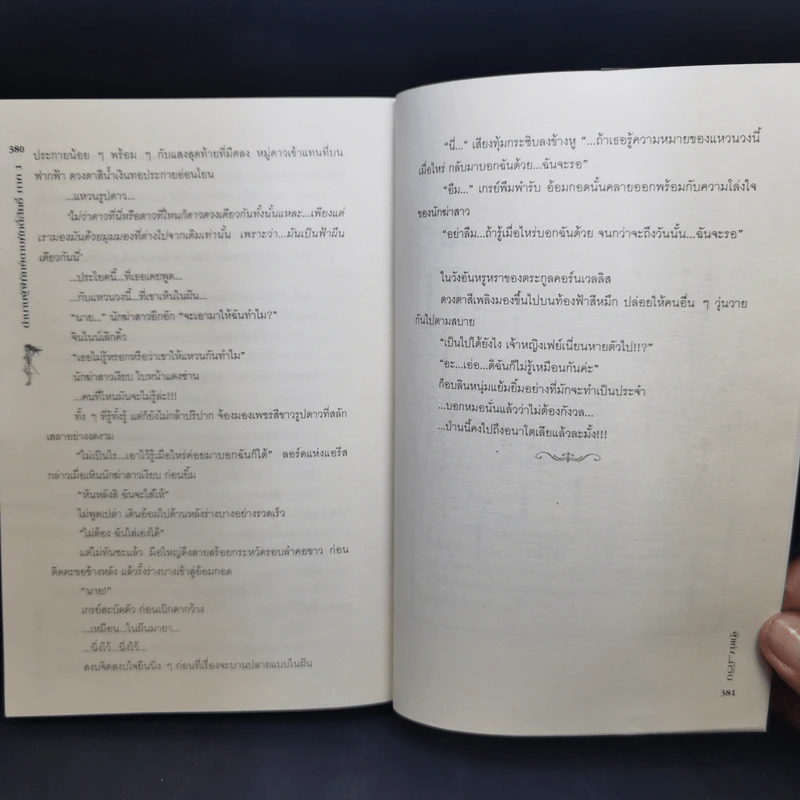 380
ประกายน้อย ๆ พร้อม ๆ กับแสงสุดท้ายที่มืดลง หมู่ดาวเข้าแทนที่บน
ฟากฟ้า ดวงตาสีน้ำเงินทอประกายอ่อนโยน
...แหวนรูปดาว...
'ไม่ว่าดาวที่นี่หรือดาวที่ไหนก็ดาวดวงเดียวกันทั้งนั้นแหละ...เพียงแต่
เรามองมันด้วยมุมมองที่ต่างไปจากเดิมเท่านั้น เพราะว่า...มันเป็นฟ้าผืน
เดียวกันนี่'
...ประโยคนี้...ที่เธอเคยพูด...
...กับแหวนวงนี้...ที่เขาเห็นในฝัน...
"นาย..." นักฆ่าสาวอึกอัก "จะเอามาให้ฉันทำไม?"
จันในน์เลิกคิ้ว
"เธอไม่รู้หรอกหรือว่าเขาให้แหวนกันทำไม"
นักฆ่าสาวเงียบ ใบหน้าแดงซ่าน
...คนที่ไหนมันจะไม่รู้ล่ะ!!!
ทั้ง ๆ ที่รู้ทั้งรู้ แต่ก็ยังไม่กล้าปริปาก จ้องมองเพชรสีขาวรูปดาวที่สลัก
เสลาอย่างงดงาม
"ไม่เป็นไร...เอาไว้รู้เมื่อไหร่ค่อยมาบอกฉันก็ได้" ลอร์ดแห่งแอรีส
กล่าวเมื่อเห็นนักฆ่าสาวเงียบ ก่อนยิ้ม
"หันหลังสิ ฉันจะใส่ให้"
ไม่พูดเปล่า เดินอ้อมไปด้านหลังร่างบางอย่างรวดเร็ว
"ไม่ต้อง ฉันใส่เองได้"
แต่ไม่ทันซะแล้ว มือใหญ่ดึงสายสร้อยกระหวัดรอบลำคอขาว ก่อน
ติดตะขอข้างหลัง แล้วรั้งร่างบางเข้าสู่อ้อมกอด
"นาย!"
เกรย์สะบัดตัว ก่อนเบิกตากว้าง
...เหมือน...ในฝันมายา...
...นิ่งไว้...นิ่งไว้...
สงบจิตสงบใจยืนนิ่ง ๆ ก่อนที่เรื่องจะบานปลายแบบในฝัน
"นี่..." เสียงทุ้มกระซิบลงข้างหู "...ถ้าเธอรู้ความหมายของแหวนวงนี้
เมื่อไหร่ กลับมาบอกฉันด้วย...ฉันจะรอ"
"อืม..." เกรย์พึมพำรับ อ้อมกอดนั้นคลายออกพร้อมกับความโล่งใจ
ของนักฆ่าสาว
"อย่าลืม...ถ้ารู้เมื่อไหร่บอกฉันด้วย จนกว่าจะถึงวันนั้น...ฉันจะรอ"
ในวังอันหรูหราของตระกูลคอร์นเวลลิส
ดวงตาสีเพลิงมองขึ้นไปบนท้องฟ้าสีหมึก ปล่อยให้คนอื่น ๆ วุ่นวาย
กันไปตามสบาย
"เป็นไปได้ยังไง เจ้าหญิงเฟย์เนี่ยนหายตัวไป!!?"
"อะ...เอ่อ...ดิฉันก็ไม่รู้เหมือนกันค่ะ"
ก็อบลินหนุ่มแย้มยิ้มอย่างที่มักจะทำเป็นประจำ
...บอกหมอนั่นแล้วว่าไม่ต้องกังวล...
...ป่านนี้คงไปถึงอนาโตเลียแล้วละมั้ง!!!
381